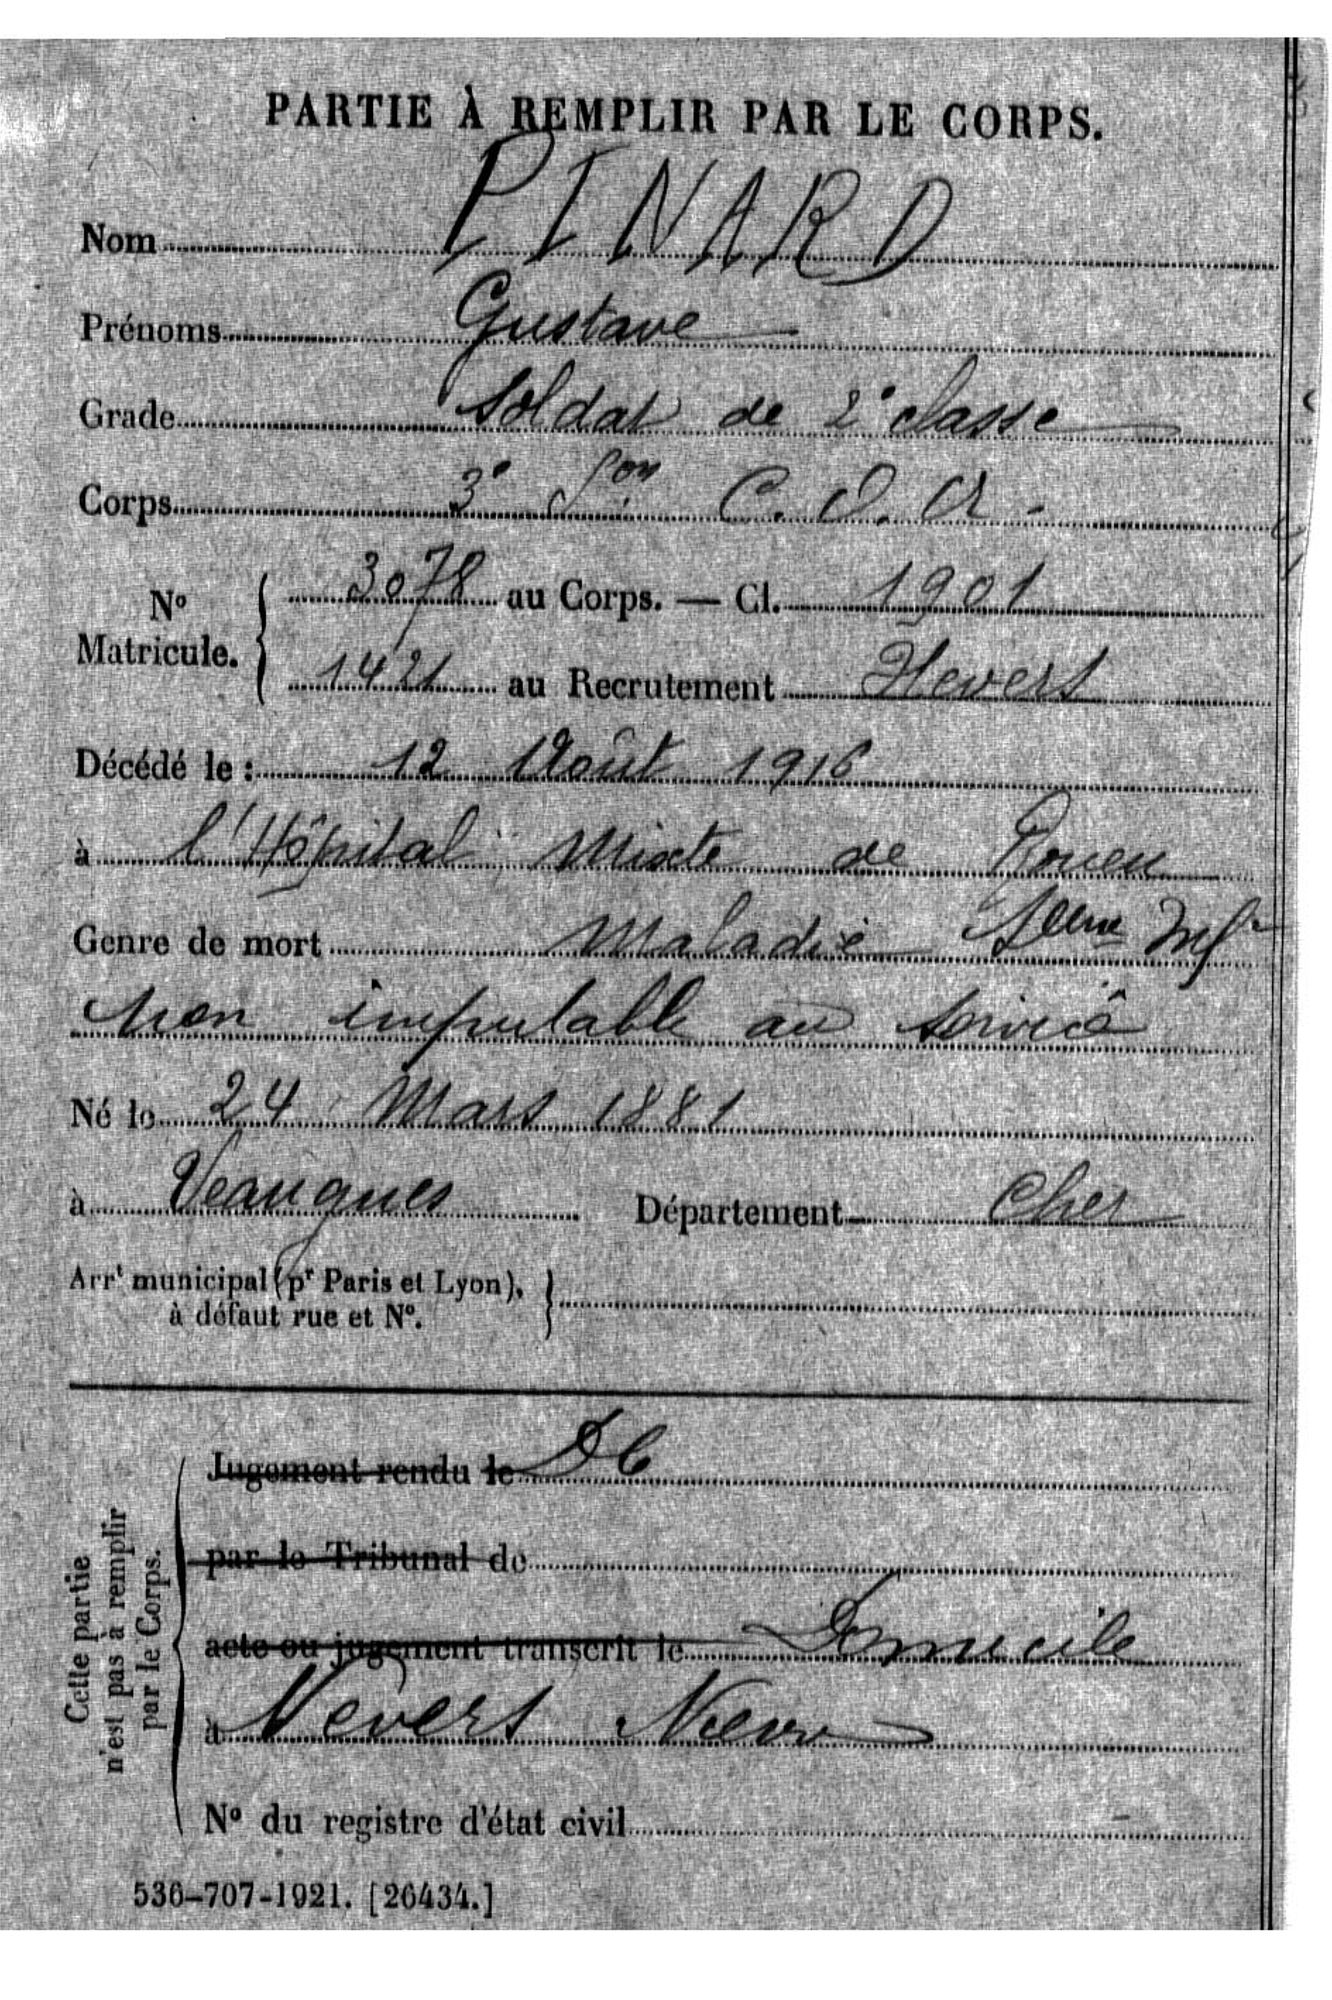 PARTIE À REMPLIR PAR LE CORPS.
Nom PINARD
Prénoms Gustave
Grade Soldat de 2e classe
Corps 3e Son C. O. A.
No Matricule. 3078 au Corps. — Cl. 1901
1421 au Recrutement Nevers
Décédé le : 12 Août 1916
à l'Hôpital Mixte de Rouen
Genre de mort Maladie
non imputable au service
Né le 24 Mars 1881
à Veaugues Département Cher
Arrt municipal (pr Paris et Lyon),
à défaut rue et No.
Cette partie
n'est pas à remplir
par le Corps.
Jugement rendu le
par le Tribunal de
acte ou jugement transcrit le Domicile
à Nevers Nièvre
No du registre d'état civil
536-707-1921. [26434.]